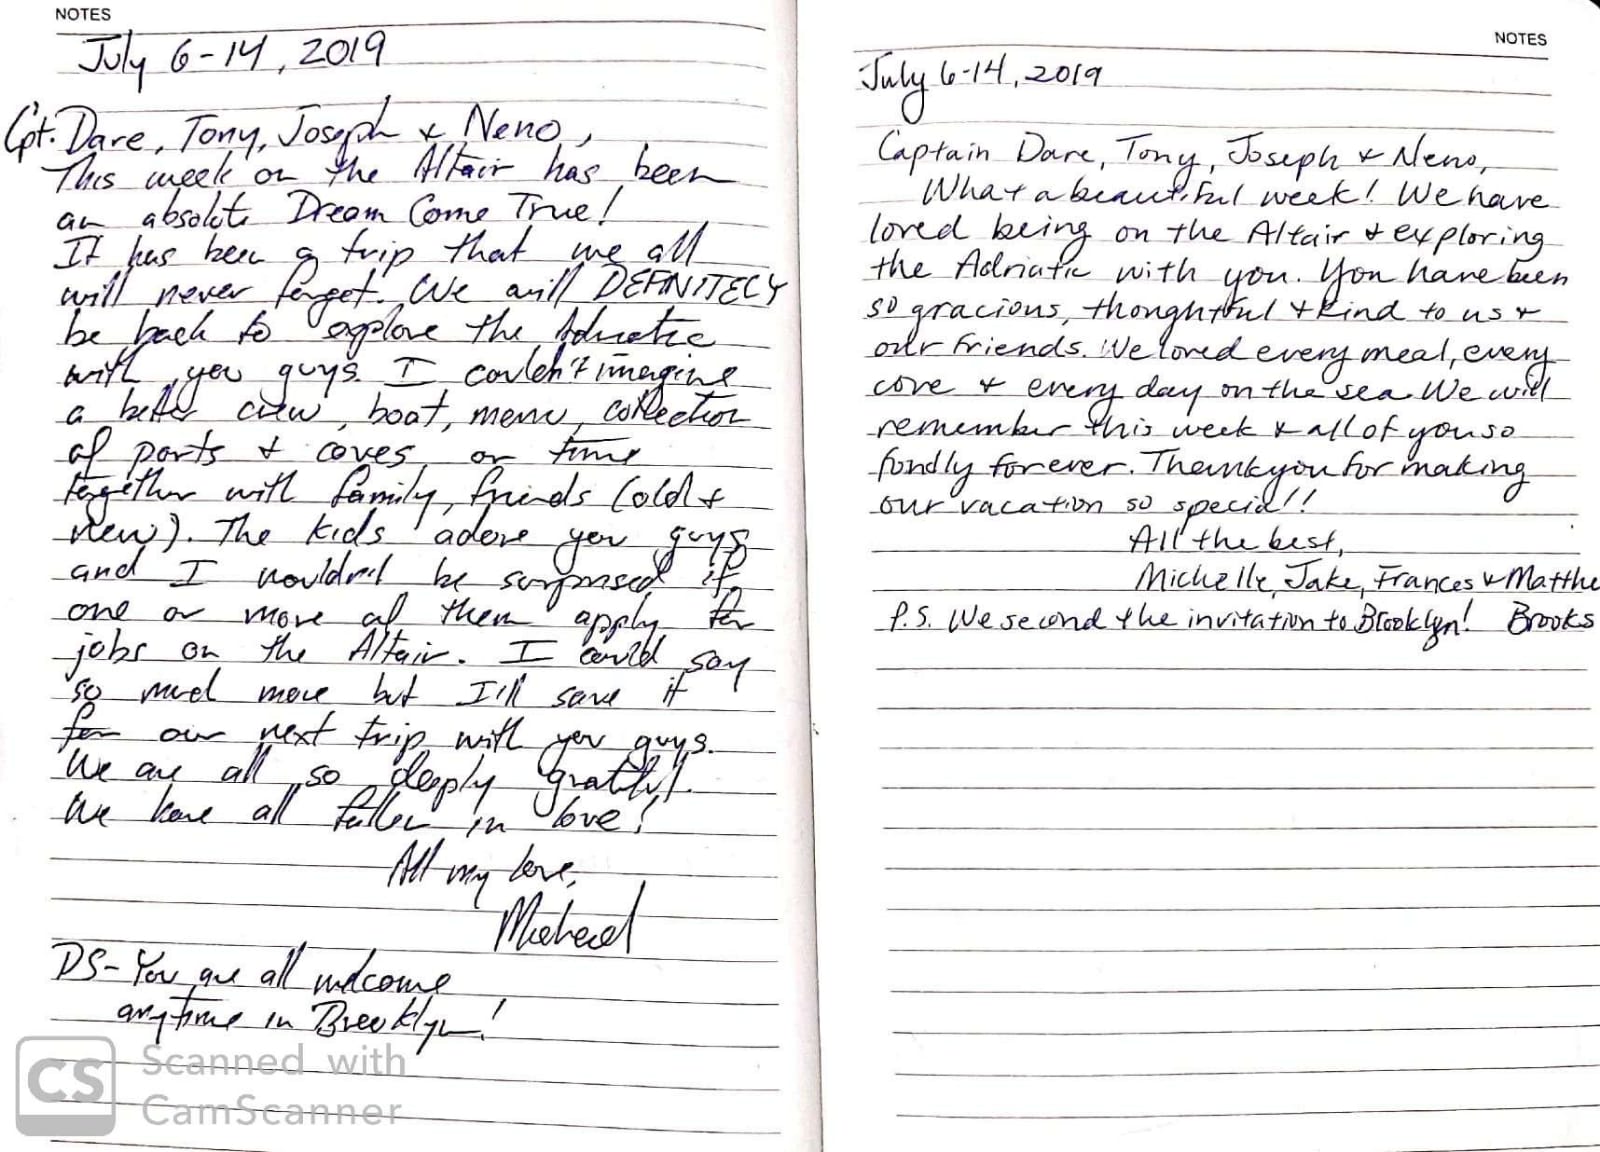 NOTES
July 6-14, 2019
Cpt. Dare, Tony, Joseph & Neno,
This week on the Altair has been
an absolute Dream Come True!
It has been a trip that we all
will never forget. We will DEFINITELY
be back to explore the Adriatic
with you guys. I couldn't imagine
a better crew, boat, menu, collection
of ports & coves, or time
together with family, friends (old &
new). The kids adore you guys
and I wouldn't be surprised if
one or more of them apply for
jobs on the Altair. I could say
so much more but I'll save it
for our next trip with you guys.
We are all so deeply grateful.
We have all fallen in love!
All my love,
Michael
PS- You are all welcome
anytime in Brooklyn!
CS Scanned with
CamScanner
NOTES
July 6-14, 2019
Captain Dare, Tony, Joseph & Neno,
What a beautiful week! We have
loved being on the Altair & exploring
the Adriatic with you. You have been
so gracious, thoughtful & kind to us &
our friends. We loved every meal, every
cove & every day on the sea. We will
remember this week & all of you so
fondly forever. Thank you for making
our vacation so special!!
All the best,
Michelle, Jake, Frances & Matthe
P.S. We second the invitation to Brooklyn! Brooks